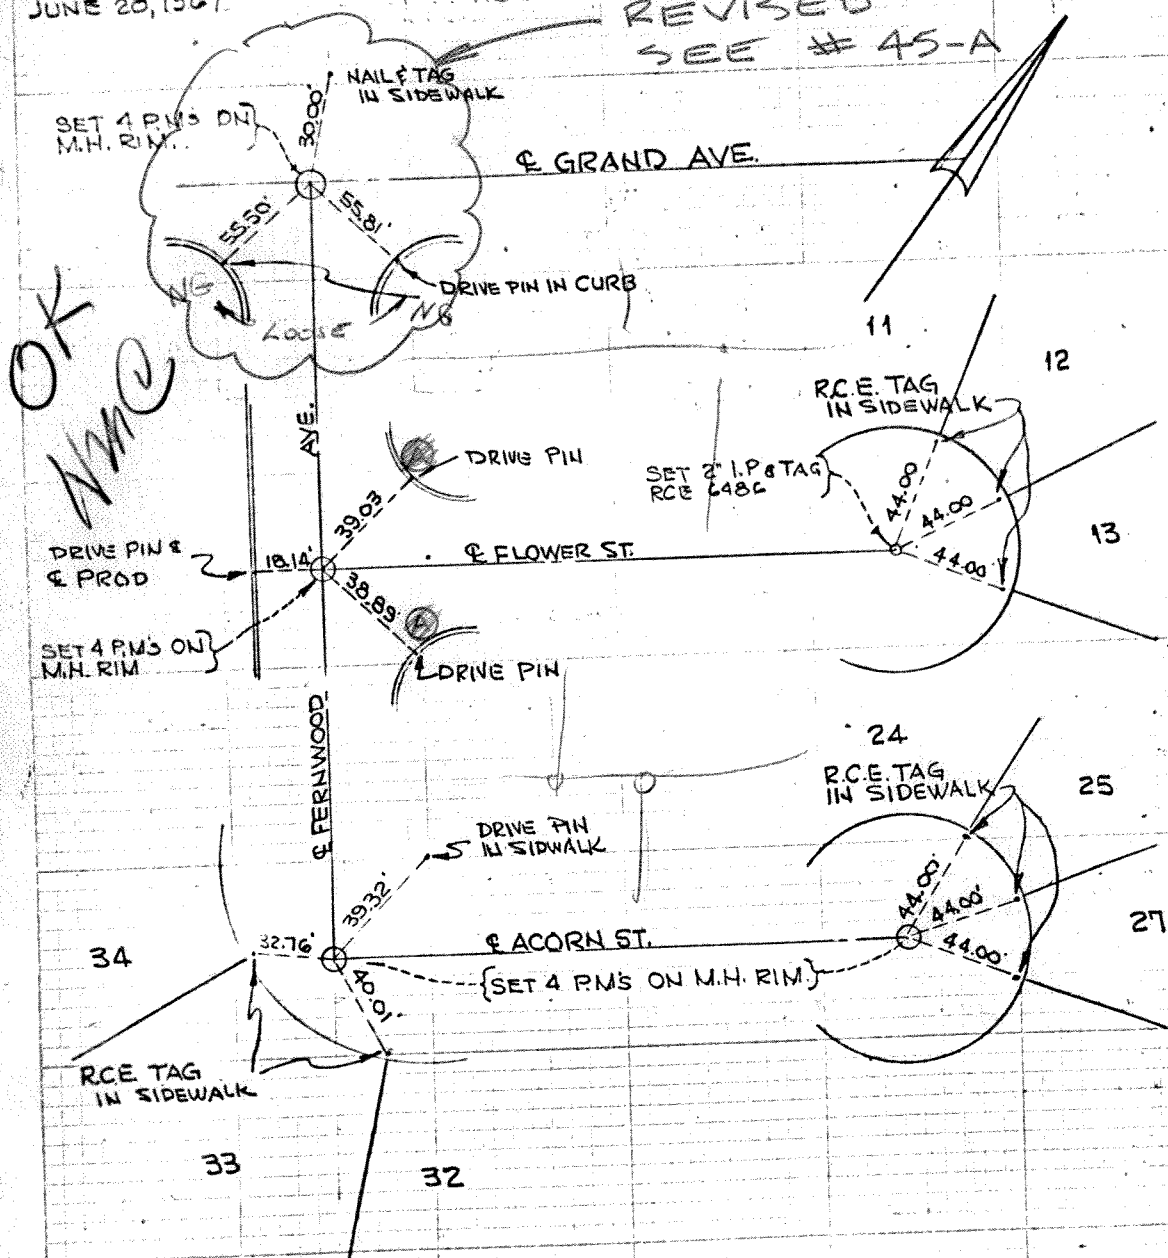 JUNE 20, 1967
REVISED
SEE # 45-A
NAIL & TAG
IN SIDEWALK
SET 4 P.M's ON
M.H. RIM.
30.00'
℄ GRAND AVE.
55.50'
55.81'
DRIVE PIN IN CURB
NG
LOOSE
NG
OK
11
12
R.C.E. TAG
IN SIDEWALK
AVE.
DRIVE PIN
SET 2" I.P & TAG
RCE 6486
44.00
44.00
44.00'
13
39.03
DRIVE PIN &
℄ PROD
18.14'
℄ FLOWER ST.
38.89'
A
SET 4 P.M's ON
M.H. RIM
DRIVE PIN
℄ FERNWOOD
24
R.C.E. TAG
IN SIDEWALK
25
DRIVE PIN
IN SIDWALK
39.32'
44.00'
44.00'
44.00'
27
34
32.76'
℄ ACORN ST.
SET 4 P.M's ON M.H. RIM.
40.01'
R.C.E. TAG
IN SIDEWALK
33
32